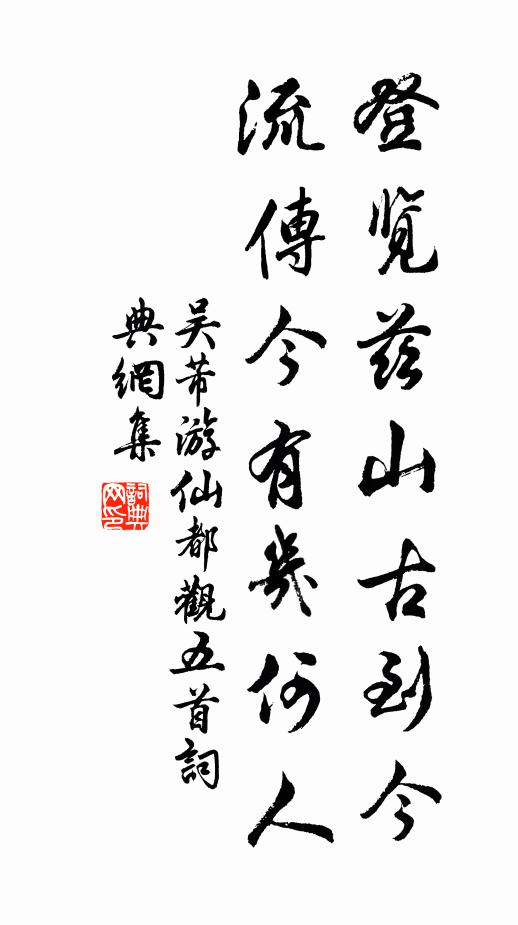 登览兹山古到今
流傳今有幾何人
吴芾游仙都觀五首詞
典網集
詞典
网印